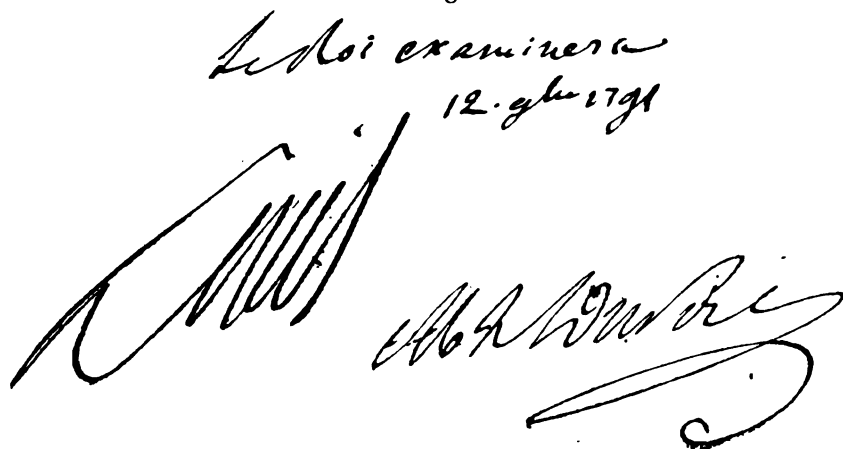 Le Roi examinera
12. 9bre 1791
Louis
M L F Duport